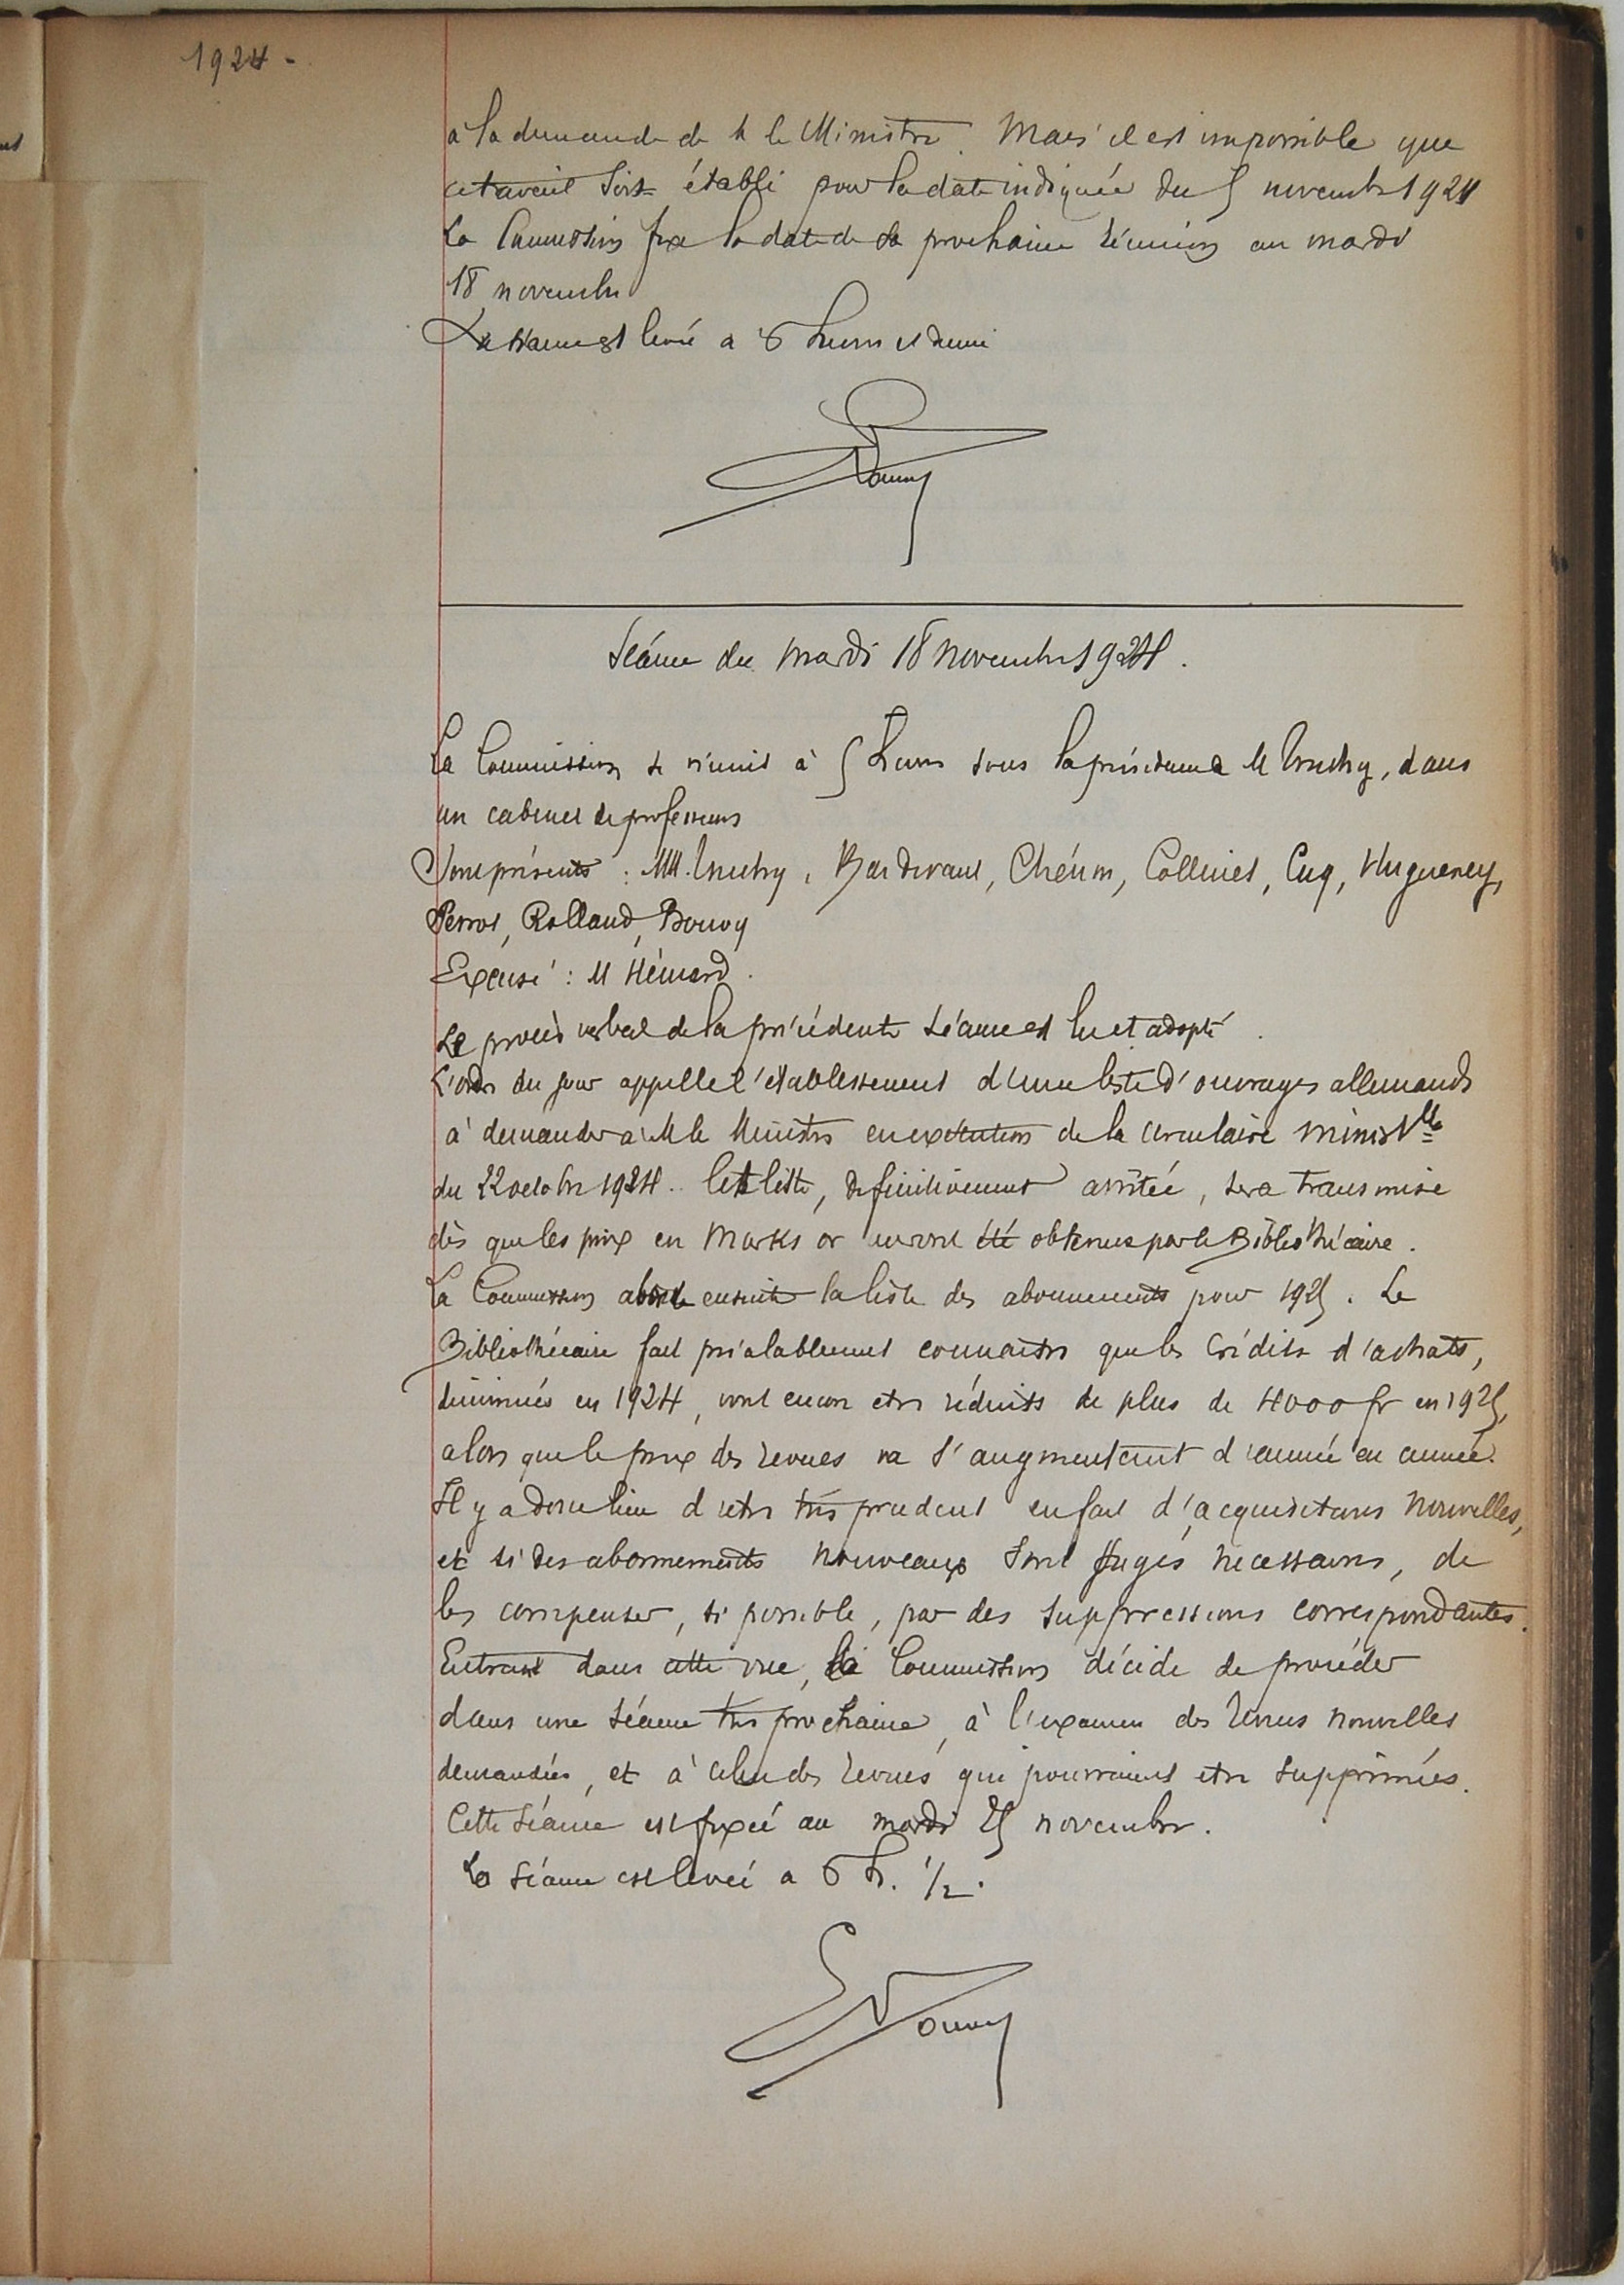 1924 -
à la demande de M le Ministre. Mais il est impossible que
ce travail soit établi pour la date indiquée du 5 novembre 1924
La Commission fixe la date de sa prochaine réunion au mardi
18 novembre
La séance est levée à 6 heures et demie
Séance du mardi 18 novembre 1924.
La Commission se réunit à 5 heures sous la présidence M Truchy, dans
un cabinet de professeurs
Sont présents : MM. Truchy, Bartin, Chéron, Collinet, Cuq, Hugueney,
Perrot, Rolland, Bouvy
Excusé : M Hémard.
Le procès verbal de la précédente séance est lu et adopté.
L'ordre du jour appelle l'établissement d'une liste d'ouvrages allemands
à demander à M le Ministre en exécution de la circulaire minist^lle
du 22 octobre 1924. Cette liste, définitivement arrêtée, sera transmise
dès que les prix en Marks or auront été obtenus par le Bibliothécaire.
La Commission aborde ensuite la liste des abonnements pour 1925. Le
Bibliothécaire fait préalablement connaître que les crédits d'achats,
diminués en 1924, vont encore être réduits de plus de 4000 fr en 1925,
alors que le prix des revues va s'augmentant d'année en année.
Il y a donc lieu d'être très prudent en fait d'acquisitions nouvelles,
et si des abonnements nouveaux sont jugés nécessaires, de
les compenser, si possible, par des suppressions correspondantes.
Entrant dans cette vue, la Commission décide de procéder
dans une séance très prochaine, à l'examen des revues nouvelles
demandées, et à celui des revues qui pourraient être supprimées.
Cette séance est fixée au mardi 25 novembre.
La séance est levée à 6 h. 1/2.